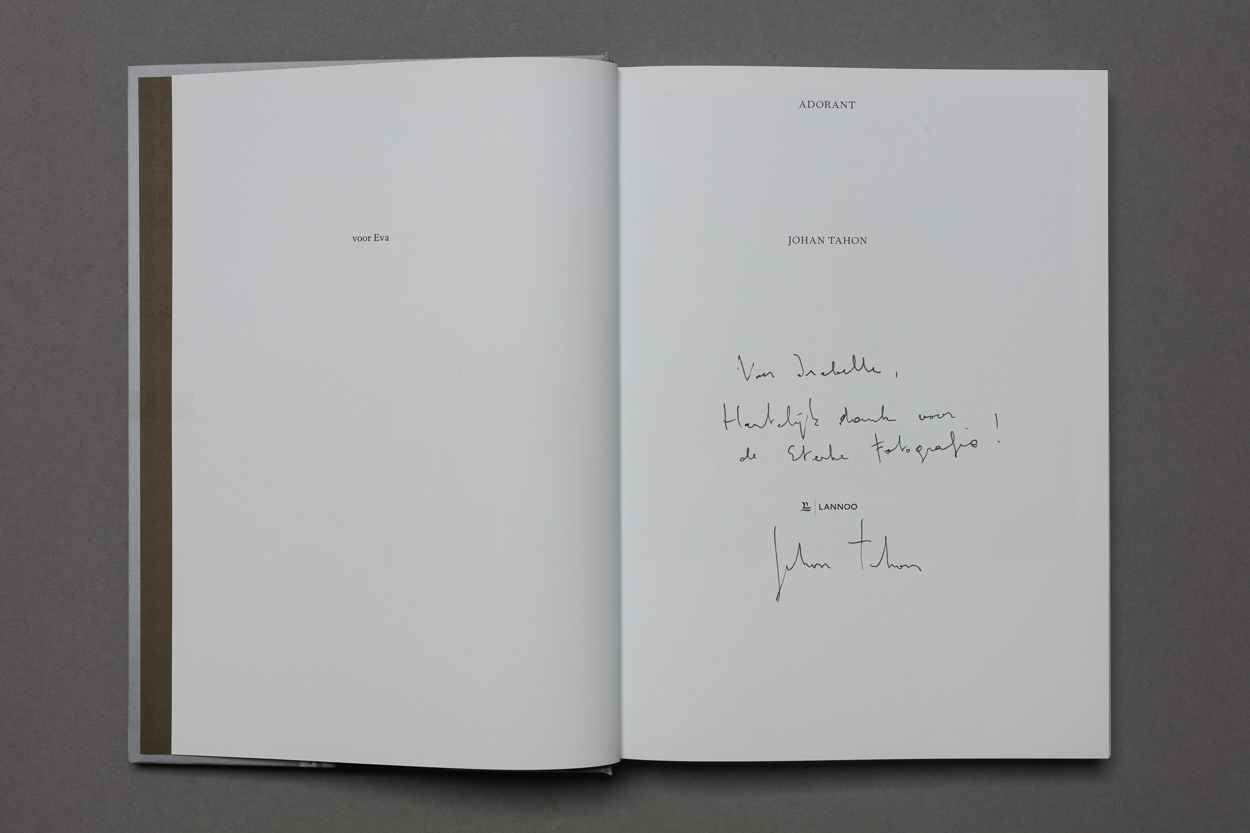 voor Eva
ADORANT
JOHAN TAHON
Voor Isabelle,
Hartelijk dank voor
de sterke Fotografie !
LANNOO
Johan Tahon